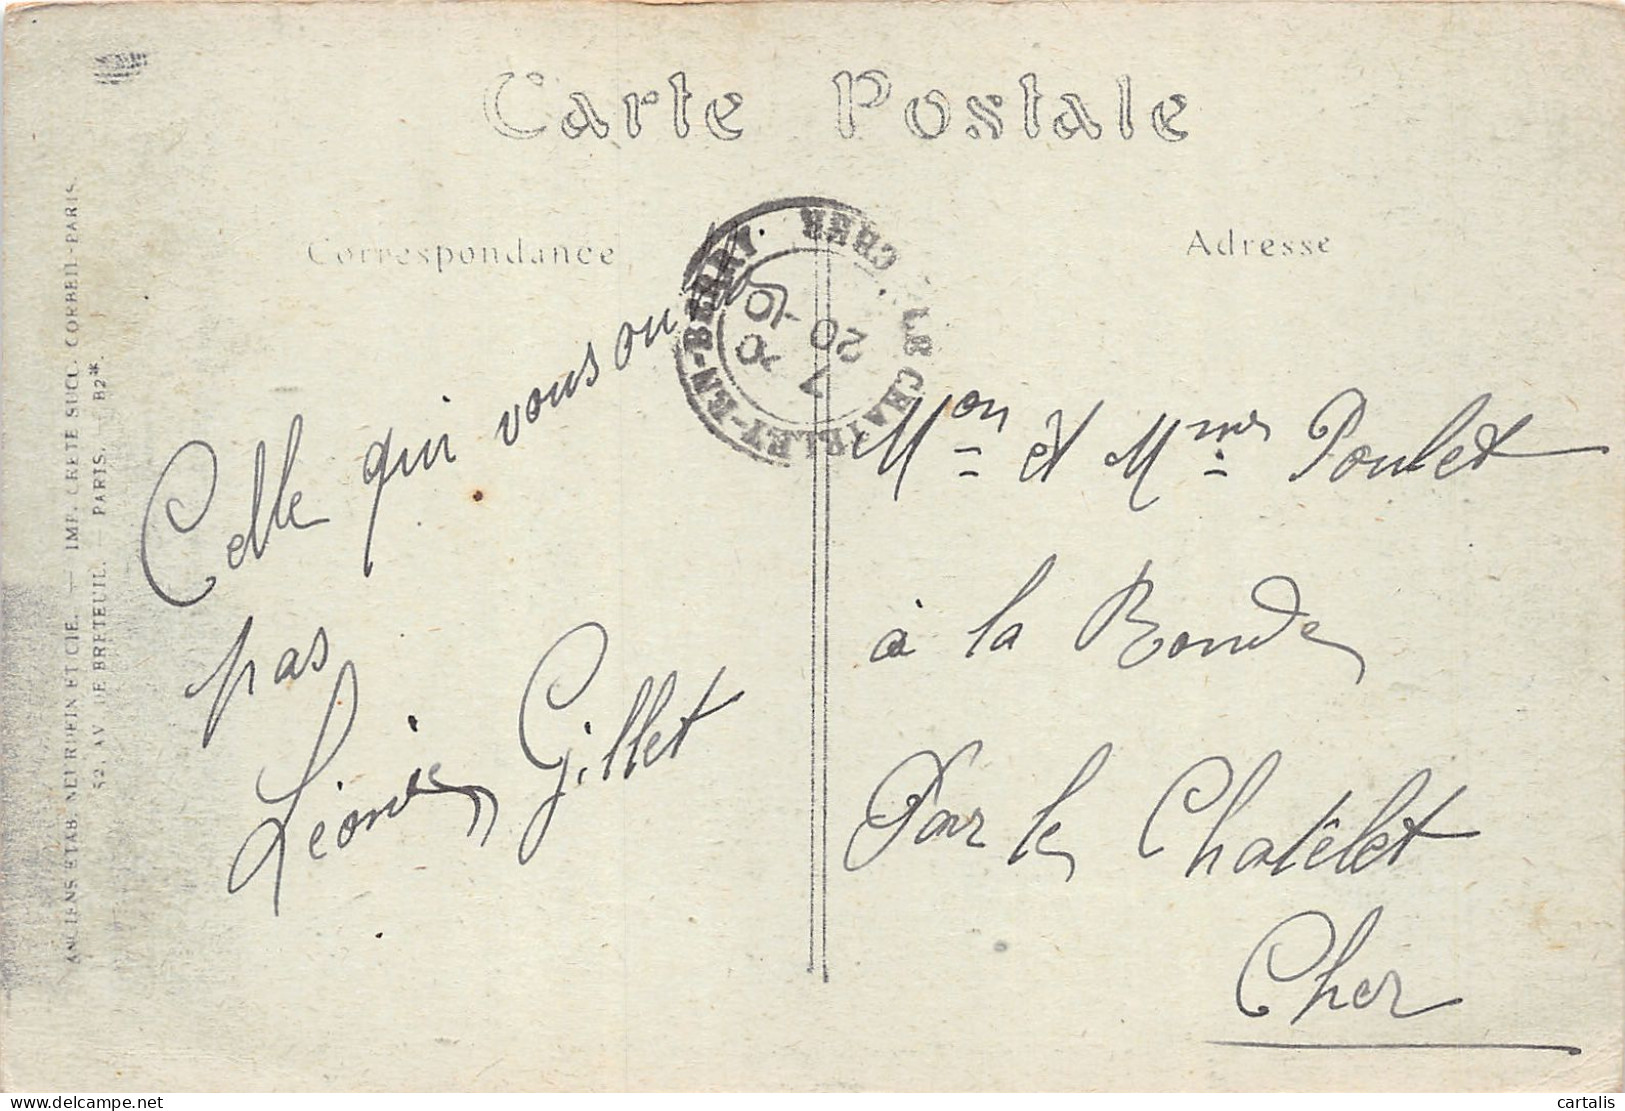 Carte Postale
Correspondance
Adresse
LE CHATELET-EN-BERRY CHER
7
20
Celle qui vous
pas
Léonie Gillet
Mon et Mme Poulet
à la Ronde
Par le Chatêlet
Cher
ANCIENS ETAB. NEURDEIN ET CIE. — IMP. CRETE SUCC. CORBEIL-PARIS.
52, AV. DE BRETEUIL. — PARIS. — B2*.
cartalis
delcampe.net